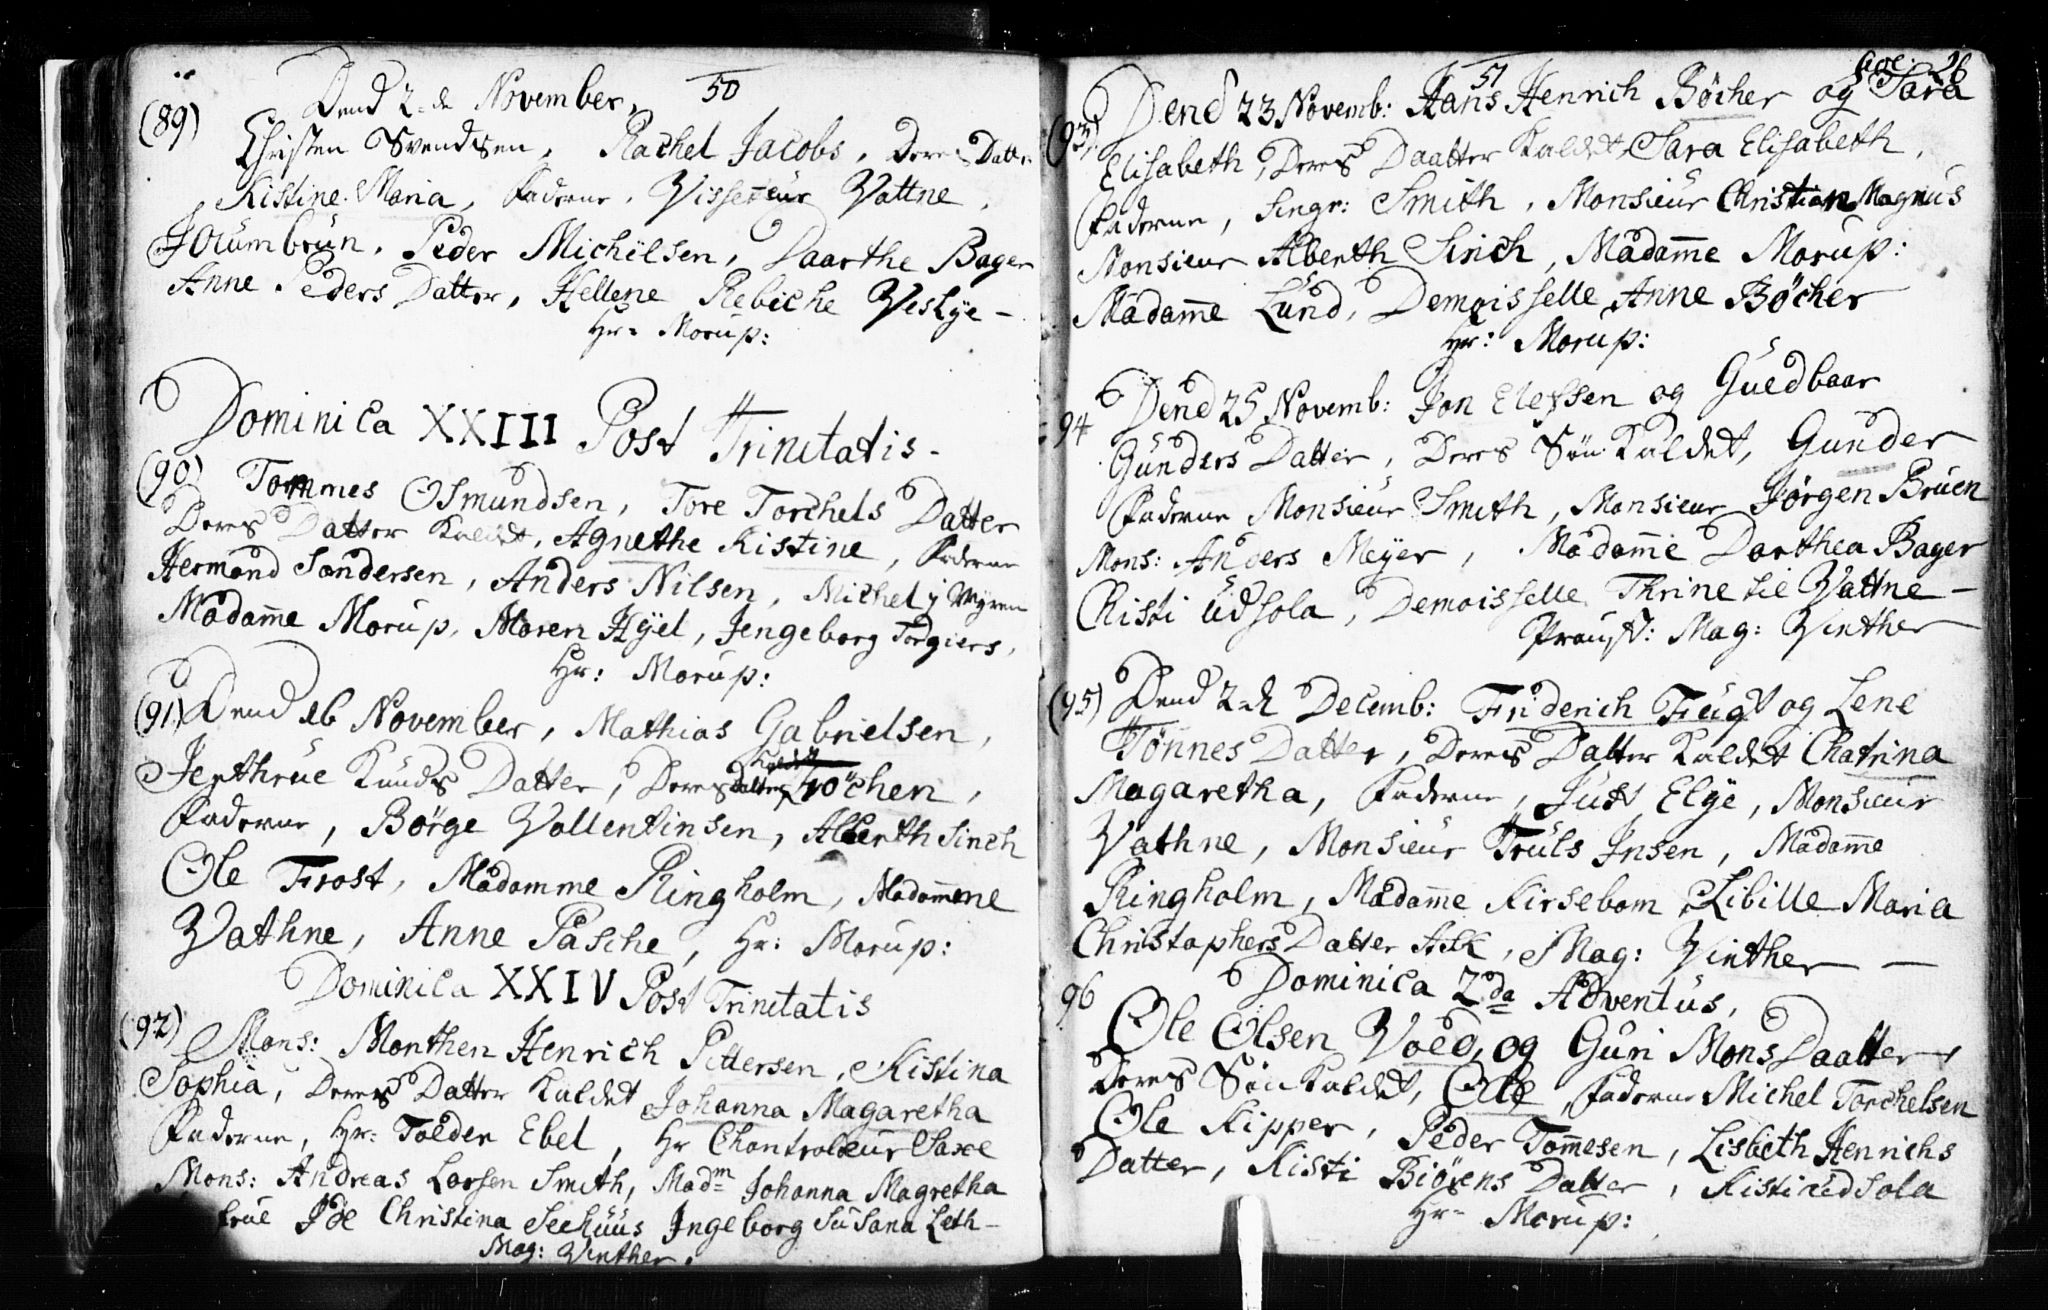 50
Dend 2de November,
(89) Christen Svendsen, Rachel Jacobs, Deres Datter
Kistine Maria, Faderne, Visseteur Vattne,
Jocumbrun, Peder Michelsen, Daarthe Bager
Anne Peders Datter, Hellene Rebiche Veslye –
Hr: Morup:
Dominica XXIII Post Trinitatis –
(90) Tommes Osmundsen, Tore Torchels Datter
Deres Datter Kaldet, Agnethe Kistine, Faderne
Hermand Sandersen, Anders Nilsen, Michel i Myren
Madame Morup, Maren Hyel, Jengeborg Torgiers,
Hr: Morup:
(91) Dend 16 November, Mathias Gabrielsen,
Jerthrue Knuds Datter, Deres Datter Kaldet
Faderne, Börge Vollentinsen, Alberth Sinch
Ole Frost, Madamme Ringholm, Madammene
Vathne, Anne Pasche, Hr: Morup:
Dominica XXIV Post Trinitatis
(92) Mons: Monthen Henrich Pettersen, Kistina
Sophia, Deres Datter Kaldet Johanna Magaretha
Faderne, Hr: Tolder Ebel, Hr Chantroleur Saxe
Mons: Andreas Larsen Smith, Madm Johanna Magretha
frue Ide Christina Seehuus Ingeborg Susana Leth –
Mag: Vinther.
51
26
(93) Dend 23 Novemb: Hans Henrich Böcher og Sara
Elisabeth, Deres Daatter Kaldet, Sara Elisabeth,
Faderne, Singr: Smith, Monsieur Christian Magnus
Monsieur Alberth Sinch, Madame Morup:
Madame Lund, Demoisselle Anne Böcher
Hr: Morup:
94 Dend 25 Novemb: Jon Elefsen og Guedbaar
Gunders Datter, Deres Sön Kaldet, Gunder
Faderne Monsieur Smith, Monsieur Jörgen Bruen
Mons: Anders Meyer, Madame Darthea Bager
Kisti udsola, Demoisselle Thrine tie Vattne –
Proust: Mag: Vinther
(95) Dend 2de Decemb: Friderich Frugt og Lene
Tönnes Datter, Deres Datter Kaldet Chatrina
Magaretha, Faderne, Just Elye, Monsieur
Vathne, Monsieur Truls Jnsen, Madame
Ringholm, Madame Kirsebom, Libille Maria
Christophers Datter Ask, Mag: Vinther –
Dominica 2da Adventus,
96 Ole Olsen Voed, og Guri Mons Daatter,
Deres Sön Kaldet, Ole, Faderne Michel Torchelsen
Ole Kipper, Peder Tommesen, Lisbeth Henrichs
Datter, Kisti Biörens Datter, Kisti udsola
Hr: Morup: